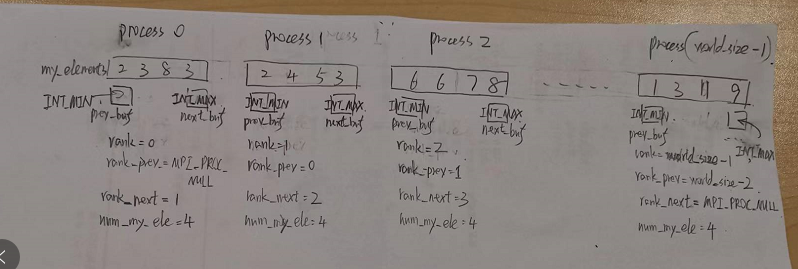 process 0
my_elements 2 3 8 3
INT_MIN
prev_buf
INT_MAX
next_buf
rank=0
rank_prev=MPI_PROC_
NULL
rank_next=1
num_my_ele=4
process 1
2 4 5 3
INT_MIN
prev_buf
INT_MAX
next_buf
rank=1
rank_prev=0
rank_next=2
num_my_ele=4
process 2
6 6 7 8
INT_MIN
prev_buf
INT_MAX
next_buf
rank=2
rank_prev=1
rank_next=3
num_my_ele=4
process(world_size-1)
1 3 11 9
INT_MIN
prev_buf
INT_MAX
rank=world_size-1
rank_prev=world_size-2
rank_next=MPI_PROC_NULL
num_my_ele=4